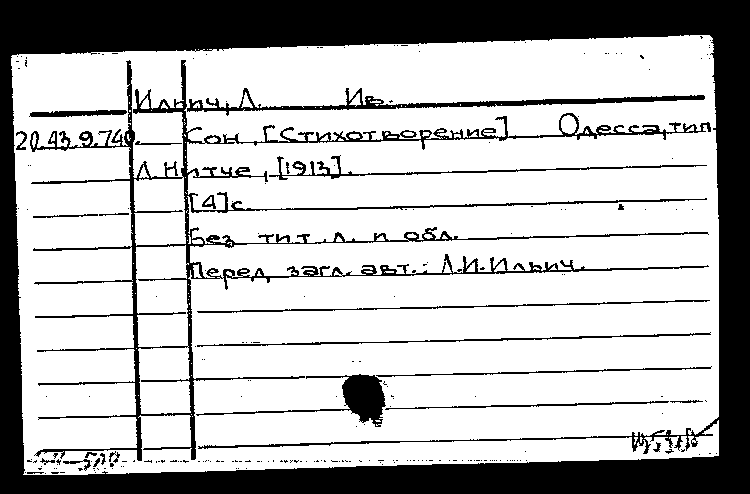 Ильич, Л. Ив.
20.43.9.740. Сон. [Стихотворение]. Одесса, тип.
Л. Нитче, [1913].
[4]с.
Без тит. л. и обл.
Перед загл. авт.: Л.И.Ильич.